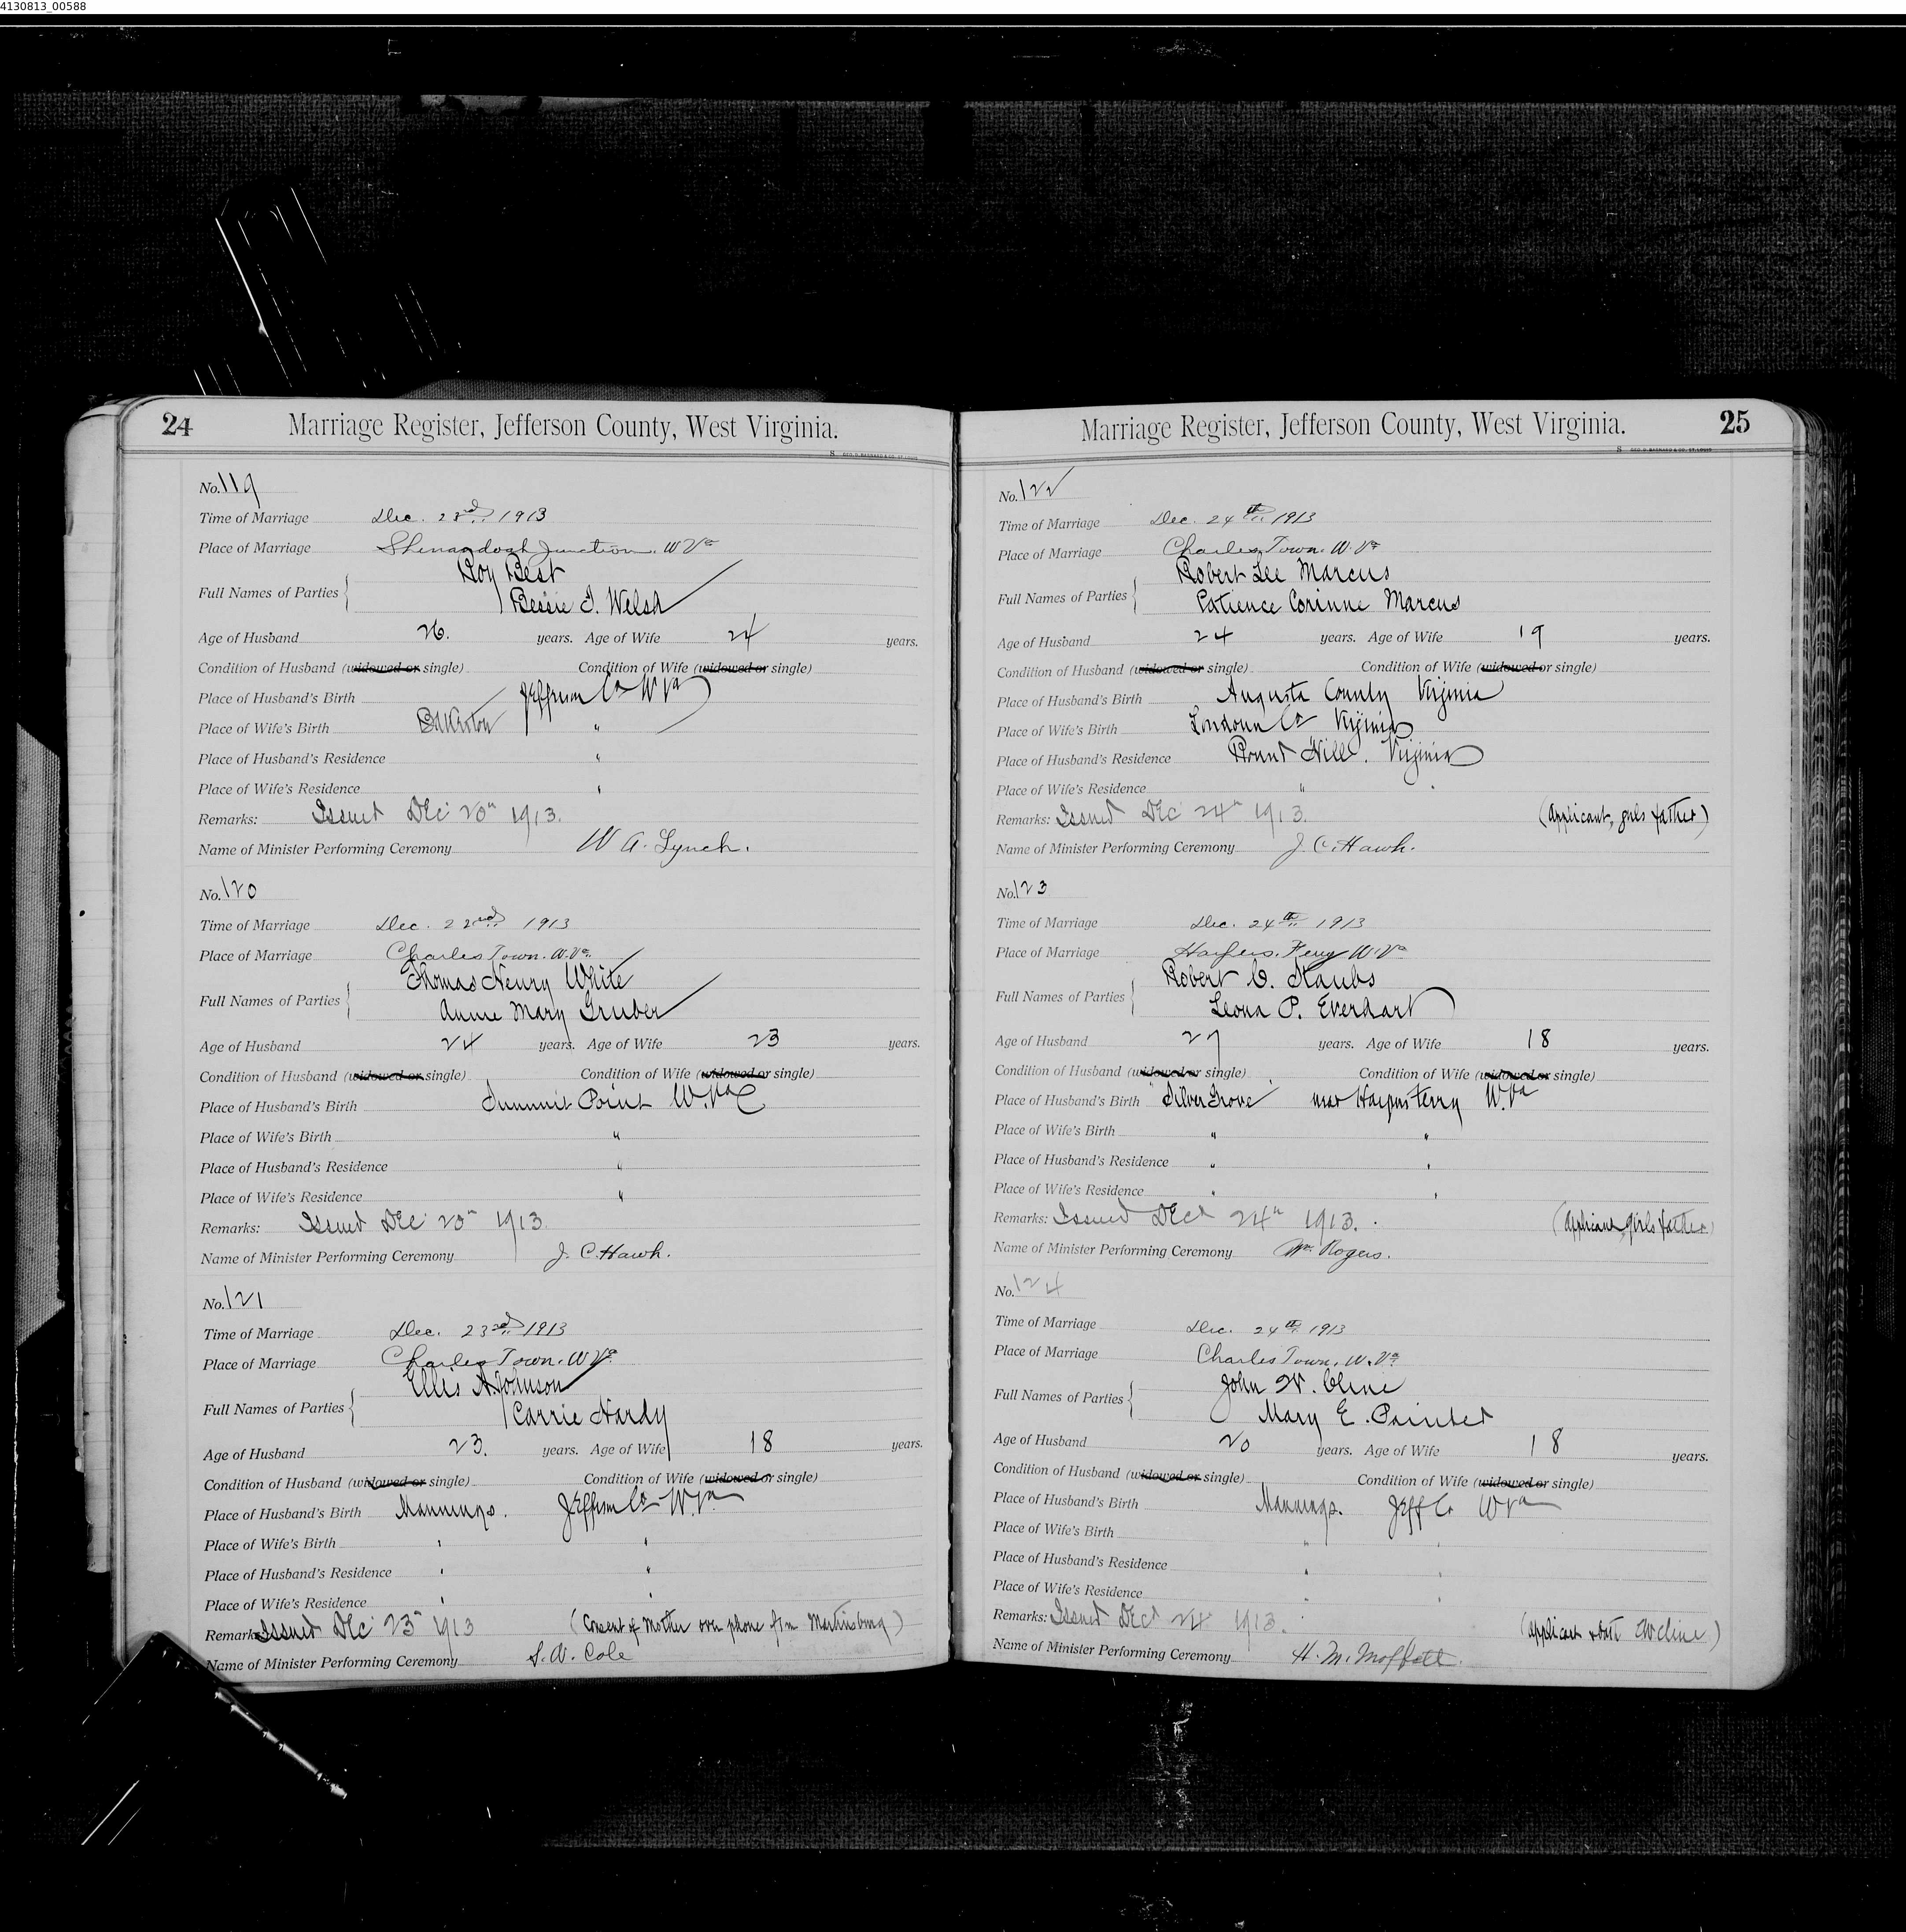 4130813_00588
24 Marriage Register, Jefferson County, West Virginia.
No. 119
Time of Marriage Dec. 23rd 1913
Place of Marriage Shenandoah Junction, W Va
Full Names of Parties Roy Best
Bessie I. Welsh
Age of Husband 26. years. Age of Wife 24 years.
Condition of Husband (widowed or single) Condition of Wife (widowed or single)
Place of Husband's Birth Jefferson Co W Va
Place of Wife's Birth "
Place of Husband's Residence "
Place of Wife's Residence "
Remarks: Issued Dec 20th 1913.
Name of Minister Performing Ceremony W A. Lynch.
No. 120
Time of Marriage Dec. 22nd 1913
Place of Marriage Charles Town. W. Va.
Full Names of Parties Thomas Henry White
Annie Mary Gruber
Age of Husband 24 years. Age of Wife 23 years.
Condition of Husband (widowed or single) Condition of Wife (widowed or single)
Place of Husband's Birth Summit Point W. Va
Place of Wife's Birth "
Place of Husband's Residence "
Place of Wife's Residence "
Remarks: Issued Dec 1913.
Name of Minister Performing Ceremony J. C. Hawk.
No. 121
Time of Marriage Dec. 23rd 1913
Place of Marriage Charles Town. W Va.
Full Names of Parties Ellis A. Johnson
Carrie Hardy
Age of Husband 23. years. Age of Wife 18 years.
Condition of Husband (widowed or single) Condition of Wife (widowed or single)
Place of Husband's Birth Mannings. Jefferson Co W. Va
Place of Wife's Birth " "
Place of Husband's Residence " "
Place of Wife's Residence " "
Remarks Issued Dec 23" 1913 (Consent of Mother over phone f/m Martinsburg)
Name of Minister Performing Ceremony S. A. Cole
Marriage Register, Jefferson County, West Virginia. 25
No. 122
Time of Marriage Dec. 24th 1913
Place of Marriage Charles Town. W. Va
Full Names of Parties Robert Lee Marcus
Patience Corinne Marcus
Age of Husband 24 years. Age of Wife 19 years.
Condition of Husband (widowed or single) Condition of Wife (widowed or single)
Place of Husband's Birth Augusta County Virginia
Place of Wife's Birth Loudoun Co Virginia
Place of Husband's Residence Round Hill. Virginia
Place of Wife's Residence " "
Remarks: Issued Dec 24th 1913. (Applicant, girls father)
Name of Minister Performing Ceremony J. C. Hawk.
No. 123
Time of Marriage Dec. 24th 1913
Place of Marriage Harpers. Ferry W. Va
Full Names of Parties Robert C. Staubs
Leona P. Everhart
Age of Husband 27 years. Age of Wife 18 years.
Condition of Husband (widowed or single) Condition of Wife (widowed or single)
Place of Husband's Birth Silver Grove near Harpers Ferry W. Va
Place of Wife's Birth " "
Place of Husband's Residence " "
Place of Wife's Residence " "
Remarks: Issued Dec 24th 1913. (Applicant, girls father)
Name of Minister Performing Ceremony Wm. Rogers.
No. 124
Time of Marriage Dec. 24th 1913
Place of Marriage Charles Town, W. Va.
Full Names of Parties John W. Cline
Mary E. Painter
Age of Husband 20 years. Age of Wife 18 years.
Condition of Husband (widowed or single) Condition of Wife (widowed or single)
Place of Husband's Birth Mannings. Jeff Co W Va
Place of Wife's Birth " "
Place of Husband's Residence " "
Place of Wife's Residence " "
Remarks: Issued Dec 24" 1913. (Applicant Cline)
Name of Minister Performing Ceremony H. M. Moffett.